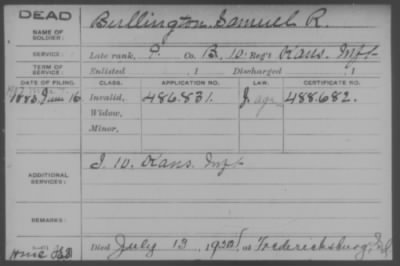 DEAD
NAME OF SOLDIER: Bullington, Samuel R.
SERVICE: Late rank, P. Co. B, 10 Reg't Kans. Inft
TERM OF SERVICE: Enlisted , 1 Discharged , 1
DATE OF FILING. CLASS. APPLICATION NO. LAW. CERTIFICATE NO.
1883, June 16 Invalid, 486.831. 488.682.
Widow,
Minor,
ADDITIONAL SERVICES: I. 10. Kans. Inft
REMARKS:
Died July 13, at Fredericksburg, Ind